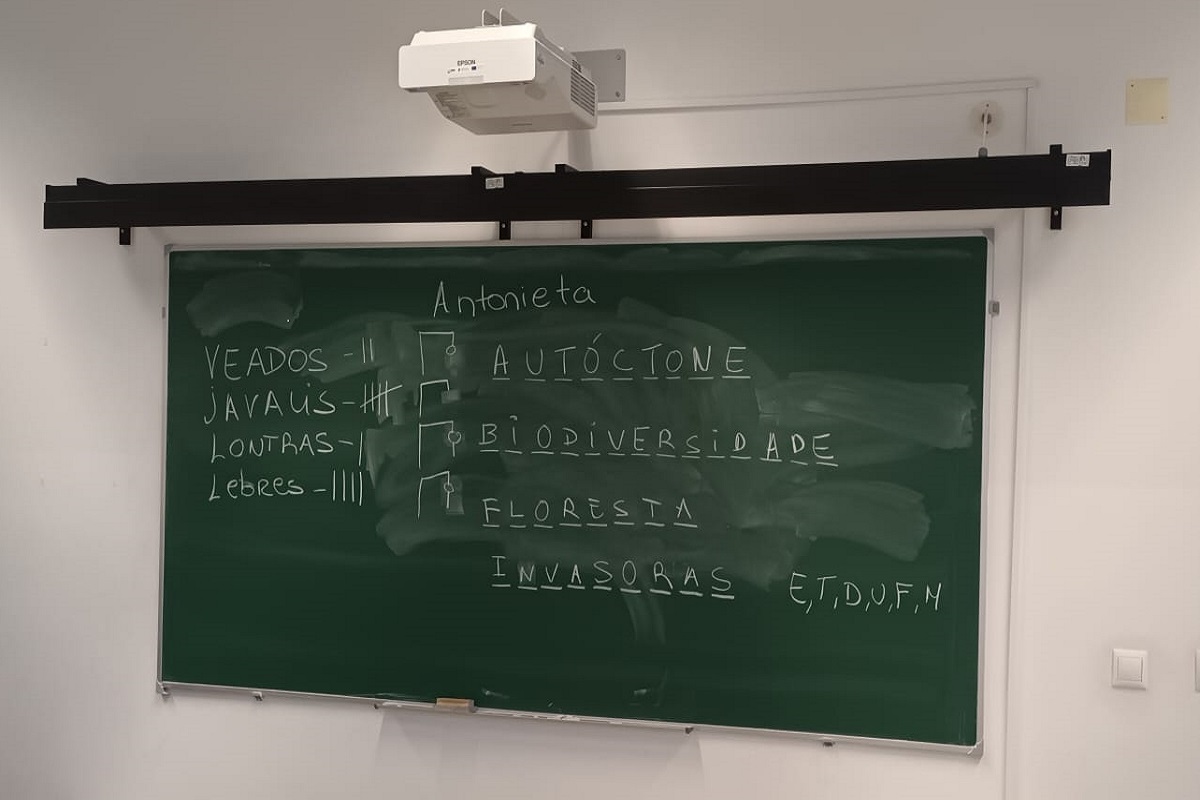 EPSON
Antonieta
VEADOS - ||
JAVALIS - ||||
LONTRAS - |
Lebres - ||||
AUTÓCTONE
BIODIVERSIDADE
FLORESTA
INVASORAS
E, T, D, U, F, M